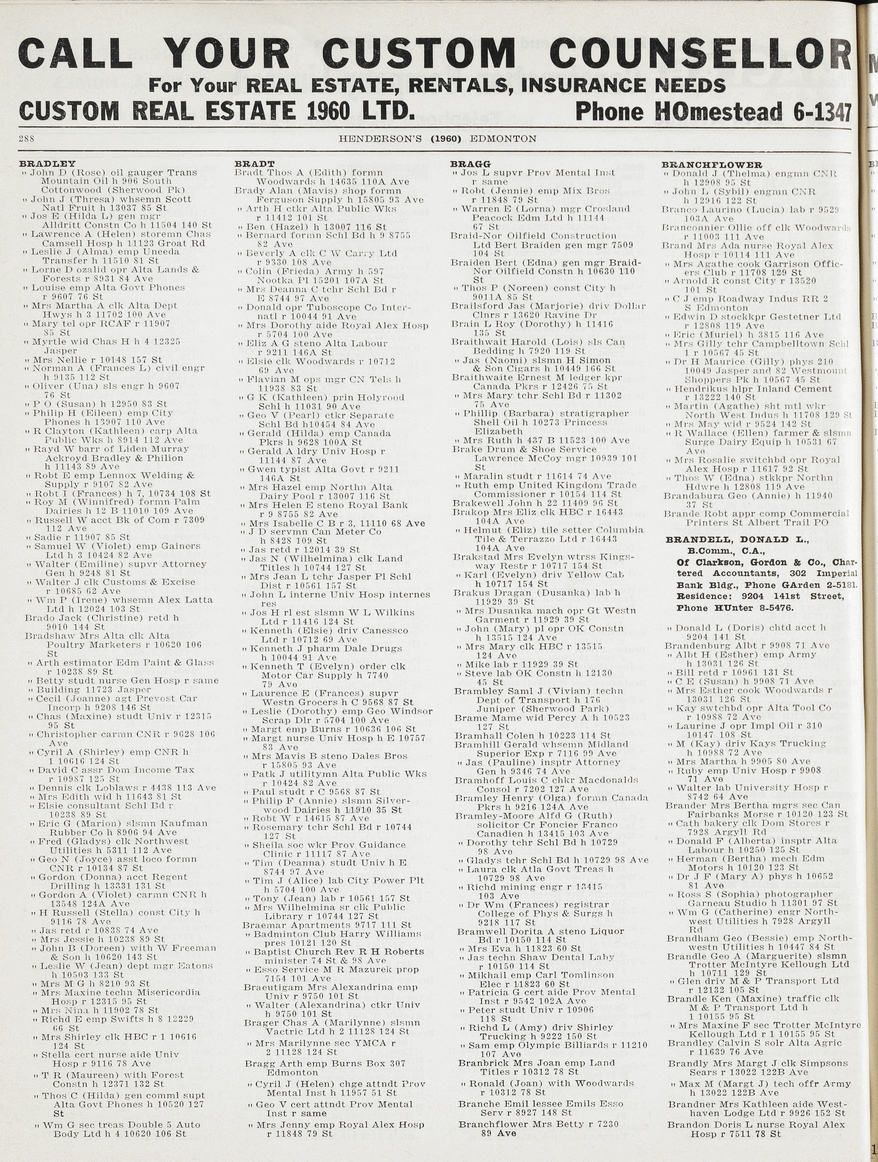 CALL YOUR CUSTOM COUNSELLOR
For Your REAL ESTATE, RENTALS, INSURANCE NEEDS
CUSTOM REAL ESTATE 1960 LTD. Phone HOmestead 6-1347
288 HENDERSON'S (1960) EDMONTON
BRADLEY
" John D (Rose) oil gauger Trans
Mountain Oil h 906 South
Cottonwood (Sherwood Pk)
" John J (Thresa) whsemn Scott
Natl Fruit h 13037 85 St
" Jos E (Hilda L) gen mgr
Alldritt Constn Co h 11504 140 St
" Lawrence A (Helen) storemn Chas
Camsell Hosp h 11123 Groat Rd
" Leslie J (Alma) emp Uneeda
Transfer h 11510 81 St
" Lorne D ozalid opr Alta Lands &
Forests r 8931 84 Ave
" Louise emp Alta Govt Phones
r 9607 76 St
" Mrs Martha A clk Alta Dept
Hwys h 3 11702 100 Ave
" Mary tel opr RCAF r 11907
85 St
" Myrtle wid Chas H h 4 12325
Jasper
" Mrs Nellie r 10148 157 St
" Norman A (Frances L) civil engr
h 9135 112 St
" Oliver (Una) sls engr h 9607
76 St
" P O (Susan) h 12950 83 St
" Philip H (Eileen) emp City
Phones h 13907 110 Ave
" R Clayton (Kathleen) carp Alta
Public Wks h 8914 112 Ave
" Rayd W barr of Liden Murray
Ackroyd Bradley & Philion
h 11143 89 Ave
" Robt E emp Lennox Welding &
Supply r 9107 82 Ave
" Robt I (Frances) h 7, 10734 108 St
" Roy M (Winnifred) formn Palm
Dairies h 12 B 11010 109 Ave
" Russell W acct Bk of Com r 7309
112 Ave
" Sadie r 11907 85 St
" Samuel W (Violet) emp Gainers
Ltd h 3 10424 82 Ave
" Walter (Emiline) supvr Attorney
Gen h 9248 81 St
" Walter J clk Customs & Excise
r 10685 62 Ave
" Wm P (Irene) whsemn Alex Latta
Ltd h 12024 103 St
Brado Jack (Christine) retd h
9010 144 St
Bradshaw Mrs Alta clk Alta
Poultry Marketers r 10620 106
St
" Arth estimator Edm Paint & Glass
r 10238 89 St
" Betty studt nurse Gen Hosp r same
" Building 11723 Jasper
" Cecil (Joanne) agt Prevost Car
Incorp h 9208 146 St
" Chas (Maxine) studt Univ r 12315
95 St
" Christopher carmn CNR r 9628 106
Ave
" Cyril A (Shirley) emp CNR h
1 10616 124 St
" David C assr Dom Income Tax
r 10987 125 St
" Dennis clk Loblaws r 4438 113 Ave
" Mrs Edith wid h 11643 81 St
" Elsie consultant Schl Bd r
10238 89 St
" Eric G (Marion) slsmn Kaufman
Rubber Co h 8906 94 Ave
" Fred (Gladys) clk Northwest
Utilities h 5311 112 Ave
" Geo N (Joyce) asst loco formn
CNR r 10134 87 St
" Gordon (Donna) acct Regent
Drilling h 13331 131 St
" Gordon A (Violet) carmn CNR h
13548 124A Ave
" H Russell (Stella) const City h
9116 78 Ave
" Jas retd r 10838 74 Ave
" Mrs Jessie h 10238 89 St
" John B (Doreen) with W Freeman
& Son h 10620 143 St
" Leslie W (Jean) dept mgr Eatons
h 10503 133 St
" Mrs M G h 8210 93 St
" Mrs Maxine techn Misericordia
Hosp r 12315 95 St
" Mrs Nina h 11902 78 St
" Richd E emp Swifts h 8 12229
66 St
" Mrs Shirley clk HBC r 1 10616
124 St
" Stella cert nurse aide Univ
Hosp r 9116 78 Ave
" T R (Maureen) with Forest
Constn h 12371 132 St
" Thos C (Hilda) gen comml supt
Alta Govt Phones h 10520 127
St
" Wm G sec treas Double 5 Auto
Body Ltd h 4 10620 106 St
BRADT
Bradt Thos A (Edith) formn
Woodwards h 14635 110A Ave
Brady Alan (Mavis) shop formn
Ferguson Supply h 15805 93 Ave
" Arth H ctkr Alta Public Wks
r 11412 101 St
" Ben (Hazel) h 13007 116 St
" Bernard formn Schl Bd h 9 8755
82 Ave
" Beverly A clk C W Carry Ltd
r 9330 108 Ave
" Colin (Frieda) Army h 597
Nootka Pl 15201 107A St
" Mrs Deanna C tchr Schl Bd r
E 8744 97 Ave
" Donald opr Tuboscope Co Inter-
natl r 10044 91 Ave
" Mrs Dorothy aide Royal Alex Hosp
r 5704 100 Ave
" Eliz A G steno Alta Labour
r 9211 146A St
" Elsie clk Woodwards r 10712
69 Ave
" Flavian M ops mgr CN Tels h
11938 83 St
" G K (Kathleen) prin Holyrood
Schl h 11031 90 Ave
" Geo V (Pearl) ctkr Separate
Schl Bd h10454 84 Ave
" Gerald (Hilda) emp Canada
Pkrs h 9628 100A St
" Gerald A ldry Univ Hosp r
11144 87 Ave
" Gwen typist Alta Govt r 9211
146A St
" Mrs Hazel emp Northn Alta
Dairy Pool r 13007 116 St
" Mrs Helen E steno Royal Bank
r 9 8755 82 Ave
" Mrs Isabelle C B r 3, 11110 68 Ave
" J D servmn Can Meter Co
h 8428 109 St
" Jas retd r 12014 39 St
" Jas N (Wilhelmina) clk Land
Titles h 10744 127 St
" Mrs Jean L tchr Jasper Pl Schl
Dist r 10561 157 St
" John L interne Univ Hosp internes
res
" Jos H rl est slsmn W L Wilkins
Ltd r 11416 124 St
" Kenneth (Elsie) driv Canessco
Ltd r 10712 69 Ave
" Kenneth J pharm Dale Drugs
h 10044 91 Ave
" Kenneth T (Evelyn) order clk
Motor Car Supply h 7740
79 Ave
" Laurence E (Frances) supvr
Westn Grocers h C 9568 87 St
" Leslie (Dorothy) emp Geo Windsor
Scrap Dlr r 5704 100 Ave
" Margt emp Burns r 10636 106 St
" Margt nurse Univ Hosp h E 10757
83 Ave
" Mrs Mavis B steno Dales Bros
r 15805 93 Ave
" Patk J utilitymn Alta Public Wks
r 10424 82 Ave
" Paul studt r C 9568 87 St
" Philip F (Annie) slsmn Silver-
wood Dairies h 11910 35 St
" Robt W r 14615 87 Ave
" Rosemary tchr Schl Bd r 10744
127 St
" Sheila soc wkr Prov Guidance
Clinic r 11117 87 Ave
" Tim (Deanna) studt Univ h E
8744 97 Ave
" Tim J (Alice) lab City Power Plt
h 5704 100 Ave
" Tony (Jean) lab r 10561 157 St
" Mrs Wilhelmina sr clk Public
Library r 10744 127 St
Braemar Apartments 9717 111 St
" Badminton Club Harry Williams
pres 10121 120 St
" Baptist Church Rev R H Roberts
minister 74 St & 98 Ave
" Esso Service M R Mazurek prop
7154 101 Ave
Braeutigam Mrs Alexandrina emp
Univ r 9750 101 St
" Walter (Alexandrina) ctkr Univ
h 9750 101 St
Brager Chas A (Marilynne) slsmn
Vactric Ltd h 2 11128 124 St
" Mrs Marilynne sec YMCA r
2 11128 124 St
Bragg Arth emp Burns Box 307
Edmonton
" Cyril J (Helen) chge attndt Prov
Mental Inst h 11957 51 St
" Geo V cert attndt Prov Mental
Inst r same
" Mrs Jenny emp Royal Alex Hosp
r 11848 79 St
BRAGG
" Jos L supvr Prov Mental Inst
r same
" Robt (Jennie) emp Mix Bros
r 11848 79 St
" Warren E (Lorna) mgr Crosland
Peacock Edm Ltd h 11144
67 St
Braid-Nor Oilfield Construction
Ltd Bert Braiden gen mgr 7509
104 St
Braiden Bert (Edna) gen mgr Braid-
Nor Oilfield Constn h 10630 110
St
" Thos P (Noreen) const City h
9011A 85 St
Brailsford Jas (Marjorie) driv Dollar
Clnrs r 13620 Ravine Dr
Brain L Roy (Dorothy) h 11416
135 St
Braithwait Harold (Lois) sls Can
Bedding h 7920 119 St
" Jas (Naomi) slsmn H Simon
& Son Cigars h 10449 166 St
Braithwaite Ernest M ledger kpr
Canada Pkrs r 12426 75 St
" Mrs Mary tchr Schl Bd r 11302
75 Ave
" Phillip (Barbara) stratigrapher
Shell Oil h 10273 Princess
Elizabeth
" Mrs Ruth h 437 B 11523 100 Ave
Brake Drum & Shoe Service
Lawrence McCoy mgr 10939 101
St
" Maralin studt r 11614 74 Ave
" Ruth emp United Kingdom Trade
Commissioner r 10154 114 St
Brakewell John h 22 11409 96 St
Brakop Mrs Eliz clk HBC r 16443
104A Ave
" Helmut (Eliz) tile setter Columbia
Tile & Terrazzo Ltd r 16443
104A Ave
Brakstad Mrs Evelyn wtrss Kings-
way Restr r 10717 154 St
" Karl (Evelyn) driv Yellow Cab
h 10717 154 St
Brakus Dragan (Dusanka) lab h
11929 39 St
" Mrs Dusanka mach opr Gt Westn
Garment r 11929 39 St
" John (Mary) pl opr OK Constn
h 13515 124 Ave
" Mrs Mary clk HBC r 13515
124 Ave
" Mike lab r 11929 39 St
" Steve lab OK Constn h 12130
45 St
Brambley Saml J (Vivian) techn
Dept of Transport h 176
Juniper (Sherwood Park)
Brame Mame wid Percy A h 10523
127 St
Bramhall Colen h 10223 114 St
Bramhill Gerald whsemn Midland
Superior Exp r 7116 99 Ave
" Jas (Pauline) insptr Attorney
Gen h 9346 74 Ave
Bramhoff Louis C chkr Macdonalds
Consol r 7202 127 Ave
Bramley Henry (Olga) formn Canada
Pkrs h 9216 124A Ave
Bramley-Moore Alfd G (Ruth)
solicitor Cr Foncier Franco
Canadien h 13415 103 Ave
" Dorothy tchr Schl Bd h 10729
98 Ave
" Gladys tchr Schl Bd h 10729 98 Ave
" Laura clk Atla Govt Treas h
10729 98 Ave
" Richd mining engr r 13415
103 Ave
" Dr Wm (Frances) registrar
College of Phys & Surgs h
9218 117 St
Bramwell Dorita A steno Liquor
Bd r 10150 114 St
" Mrs Eva h 11823 60 St
" Jas techn Shaw Dental Laby
r 10150 114 St
" Mikhail emp Carl Tomlinson
Elec r 11823 60 St
" Patricia G cert aide Prov Mental
Inst r 9542 102A Ave
" Peter studt Univ r 10906
118 St
" Richd L (Amy) driv Shirley
Trucking h 9222 150 St
" Sam emp Olympic Billiards r 11210
107 Ave
Branbrick Mrs Joan emp Land
Titles r 10312 78 St
" Ronald (Joan) with Woodwards
r 10312 78 St
Branche Emil lessee Emils Esso
Serv r 8927 148 St
Branchflower Mrs Betty r 7230
89 Ave
BRANCHFLOWER
" Donald J (Thelma) engmn CNR
h 12908 95 St
" John L (Sybil) engmn CNR
h 12916 122 St
Branco Laurino (Lucia) lab r 9529
103A Ave
Branconnier Ollie off clk Woodwards
r 11003 111 Ave
Brand Mrs Ada nurse Royal Alex
Hosp r 10114 111 Ave
" Mrs Agathe cook Garrison Offic-
ers Club r 11708 129 St
" Arnold R const City r 13520
101 St
" C J emp Roadway Indus RR 2
S Edmonton
" Edwin D stockkpr Gestetner Ltd
r 12808 119 Ave
" Eric (Muriel) h 3815 116 Ave
" Mrs Gilly tchr Campbelltown Schl
1 r 10567 45 St
" Dr H Maurice (Gilly) phys 210
10049 Jasper and 82 Westmount
Shoppers Pk h 10567 45 St
" Hendrikus hlpr Inland Cement
r 13222 140 St
" Martin (Agathe) sht mtl wkr
North West Indus h 11708 129 St
" Mrs May wid r 9524 142 St
" R Wallace (Ellen) farmer & slsmn
Surge Dairy Equip h 10531 67
Ave
" Mrs Rosalie switchbd opr Royal
Alex Hosp r 11617 92 St
" Thos W (Edna) stkkpr Northn
Hdwre h 12808 119 Ave
Brandabura Geo (Annie) h 11940
37 St
Brande Robt appr comp Commercial
Printers St Albert Trail PO
BRANDELL, DONALD L.,
B.Comm., C.A.,
Of Clarkson, Gordon & Co., Char-
tered Accountants, 302 Imperial
Bank Bldg., Phone GArden 2-5181.
Residence: 9204 141st Street,
Phone HUnter 8-5476.
" Donald L (Doris) chtd acct h
9204 141 St
Brandenburg Albt r 9908 71 Ave
" Albt H (Esther) emp Army
h 13031 126 St
" Bill retd r 10961 131 St
" C E (Susan) h 9908 71 Ave
" Mrs Esther cook Woodwards r
13031 126 St
" Kay switchbd opr Alta Tool Co
r 10988 72 Ave
" Laurine J opr Impl Oil r 310
10147 108 St
" M (Kay) driv Kays Trucking
h 10988 72 Ave
" Mrs Martha h 9905 80 Ave
" Ruby emp Univ Hosp r 9908
71 Ave
" Walter lab University Hosp r
8742 64 Ave
Brander Mrs Bertha mgrs sec Can
Fairbanks Morse r 10120 123 St
" Cath bakery clk Dom Stores r
7928 Argyll Rd
" Donald F (Alberta) insptr Alta
Labour h 10250 125 St
" Herman (Bertha) mech Edm
Motors h 10120 123 St
" Dr J F (Mary A) phys h 10652
81 Ave
" Ross S (Sophia) photographer
Garneau Studio h 11301 97 St
" Wm G (Catherine) engr North-
west Utilities h 7928 Argyll
Rd
Brandham Geo (Bessie) emp North-
westn Utilities h 10447 84 St
Brandle Geo A (Marguerite) slsmn
Trotter McIntyre Kellough Ltd
h 10711 129 St
" Glen driv M & P Transport Ltd
r 12132 105 St
Brandle Ken (Maxine) traffic clk
M & P Transport Ltd h
1 10155 95 St
" Mrs Maxine F sec Trotter McIntyre
Kellough Ltd r 1 10155 95 St
Brandley Calvin S solr Alta Agric
r 11639 76 Ave
Brandly Mrs Margt J clk Simpsons
Sears r 13022 122B Ave
" Max M (Margt J) tech offr Army
h 13022 122B Ave
Brandner Mrs Kathleen aide West-
haven Lodge Ltd r 9926 152 St
Brandon Doris L nurse Royal Alex
Hosp r 7511 78 St